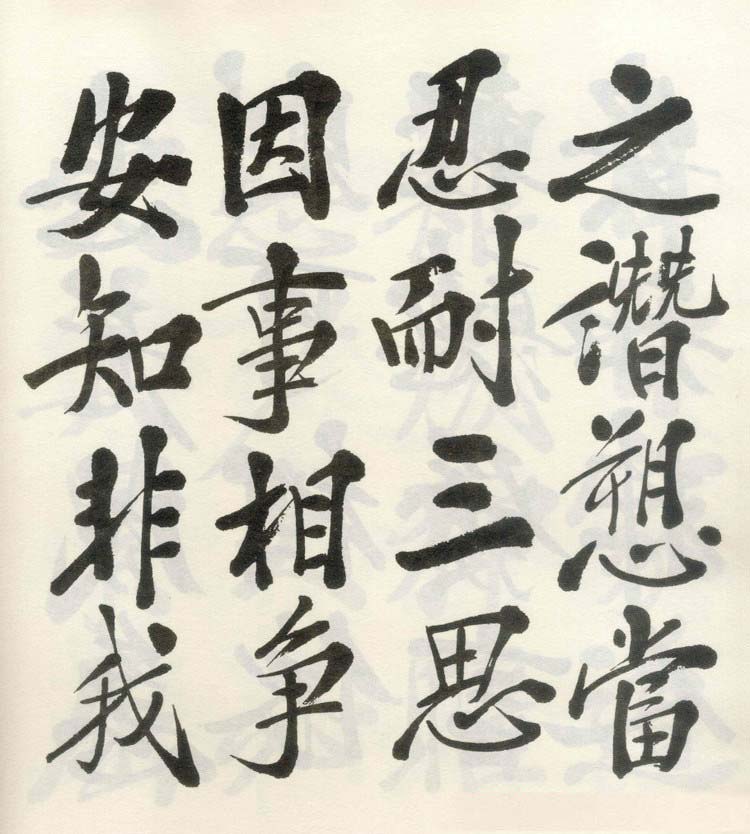 之譛愬當
忍耐三思
因事相争
安知非我